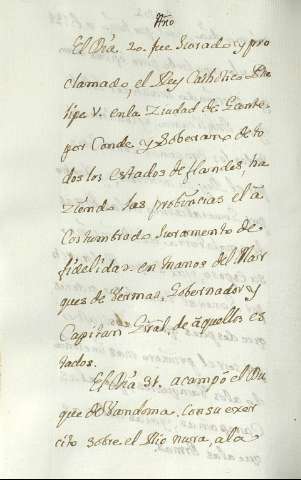 Año
El Dia 20. fue Jurado, y pro
clamado, el Rey Catholico Phe
lipe V. en la Ziudad de Gante,
por Conde, y Soberano de to
dos los estados de flandes, ha
ziendo las probincias el a
Costumbrado Juramento de
fidelidad en manos del Marˉ
ques de Vermas, Gobernador y
Capitan Gñral, de aquellos es
tados.
El Dia 31. acampó el Du
que de Vandoma, con su exer
cito sobre el Rio, a la